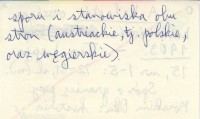 sporu i stanowiska obu
stron (austriackie, tj. polskie,
oraz węgierskie)